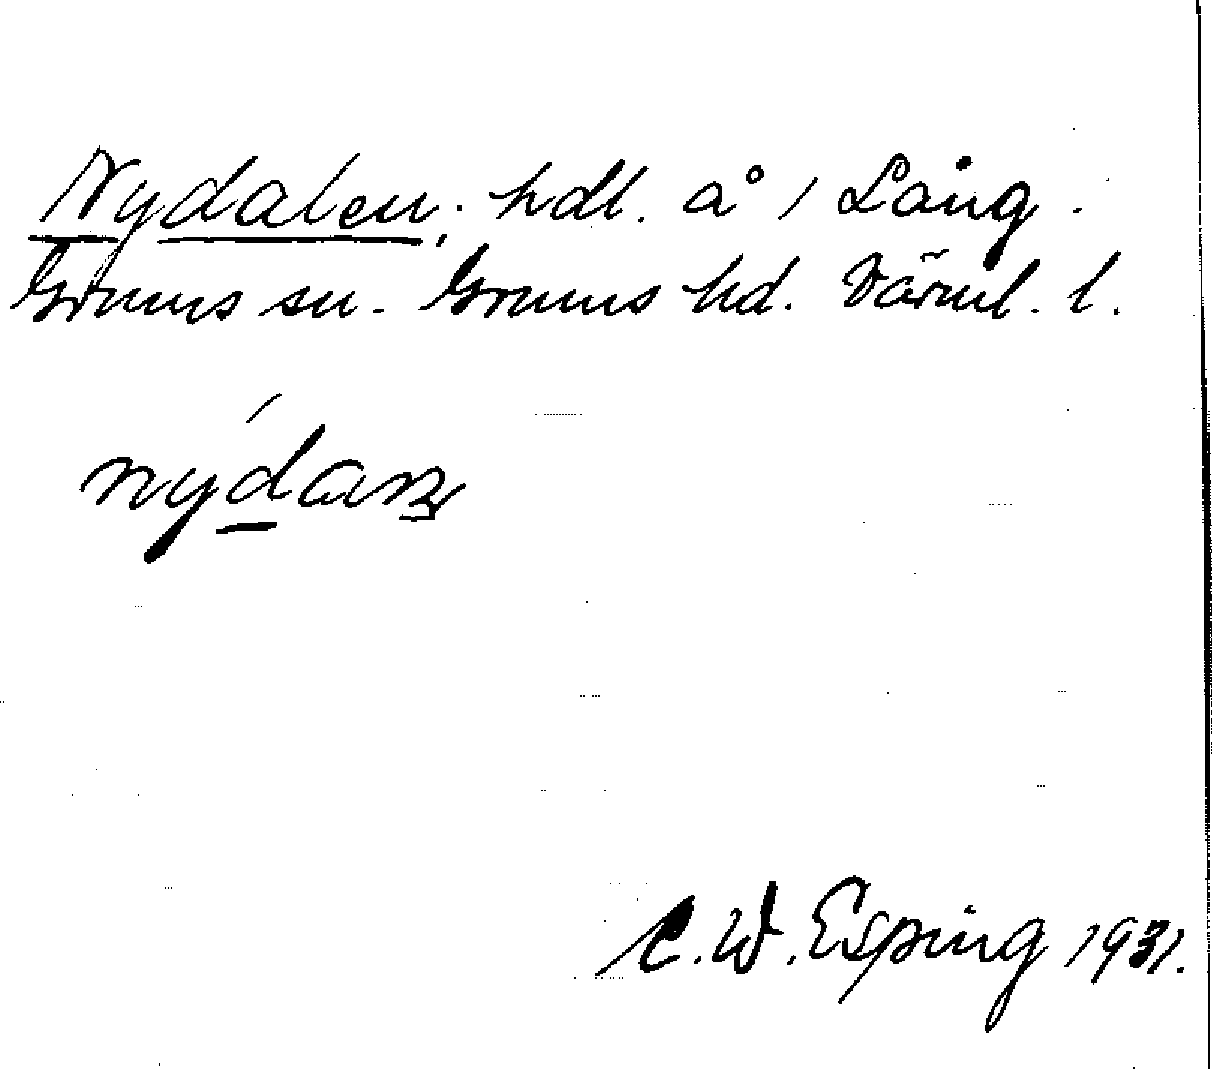 Nydalen, hdl. å 1 Lång.
Grums sn. Grums hd. Värml. l.
C. W. Esping 1931.